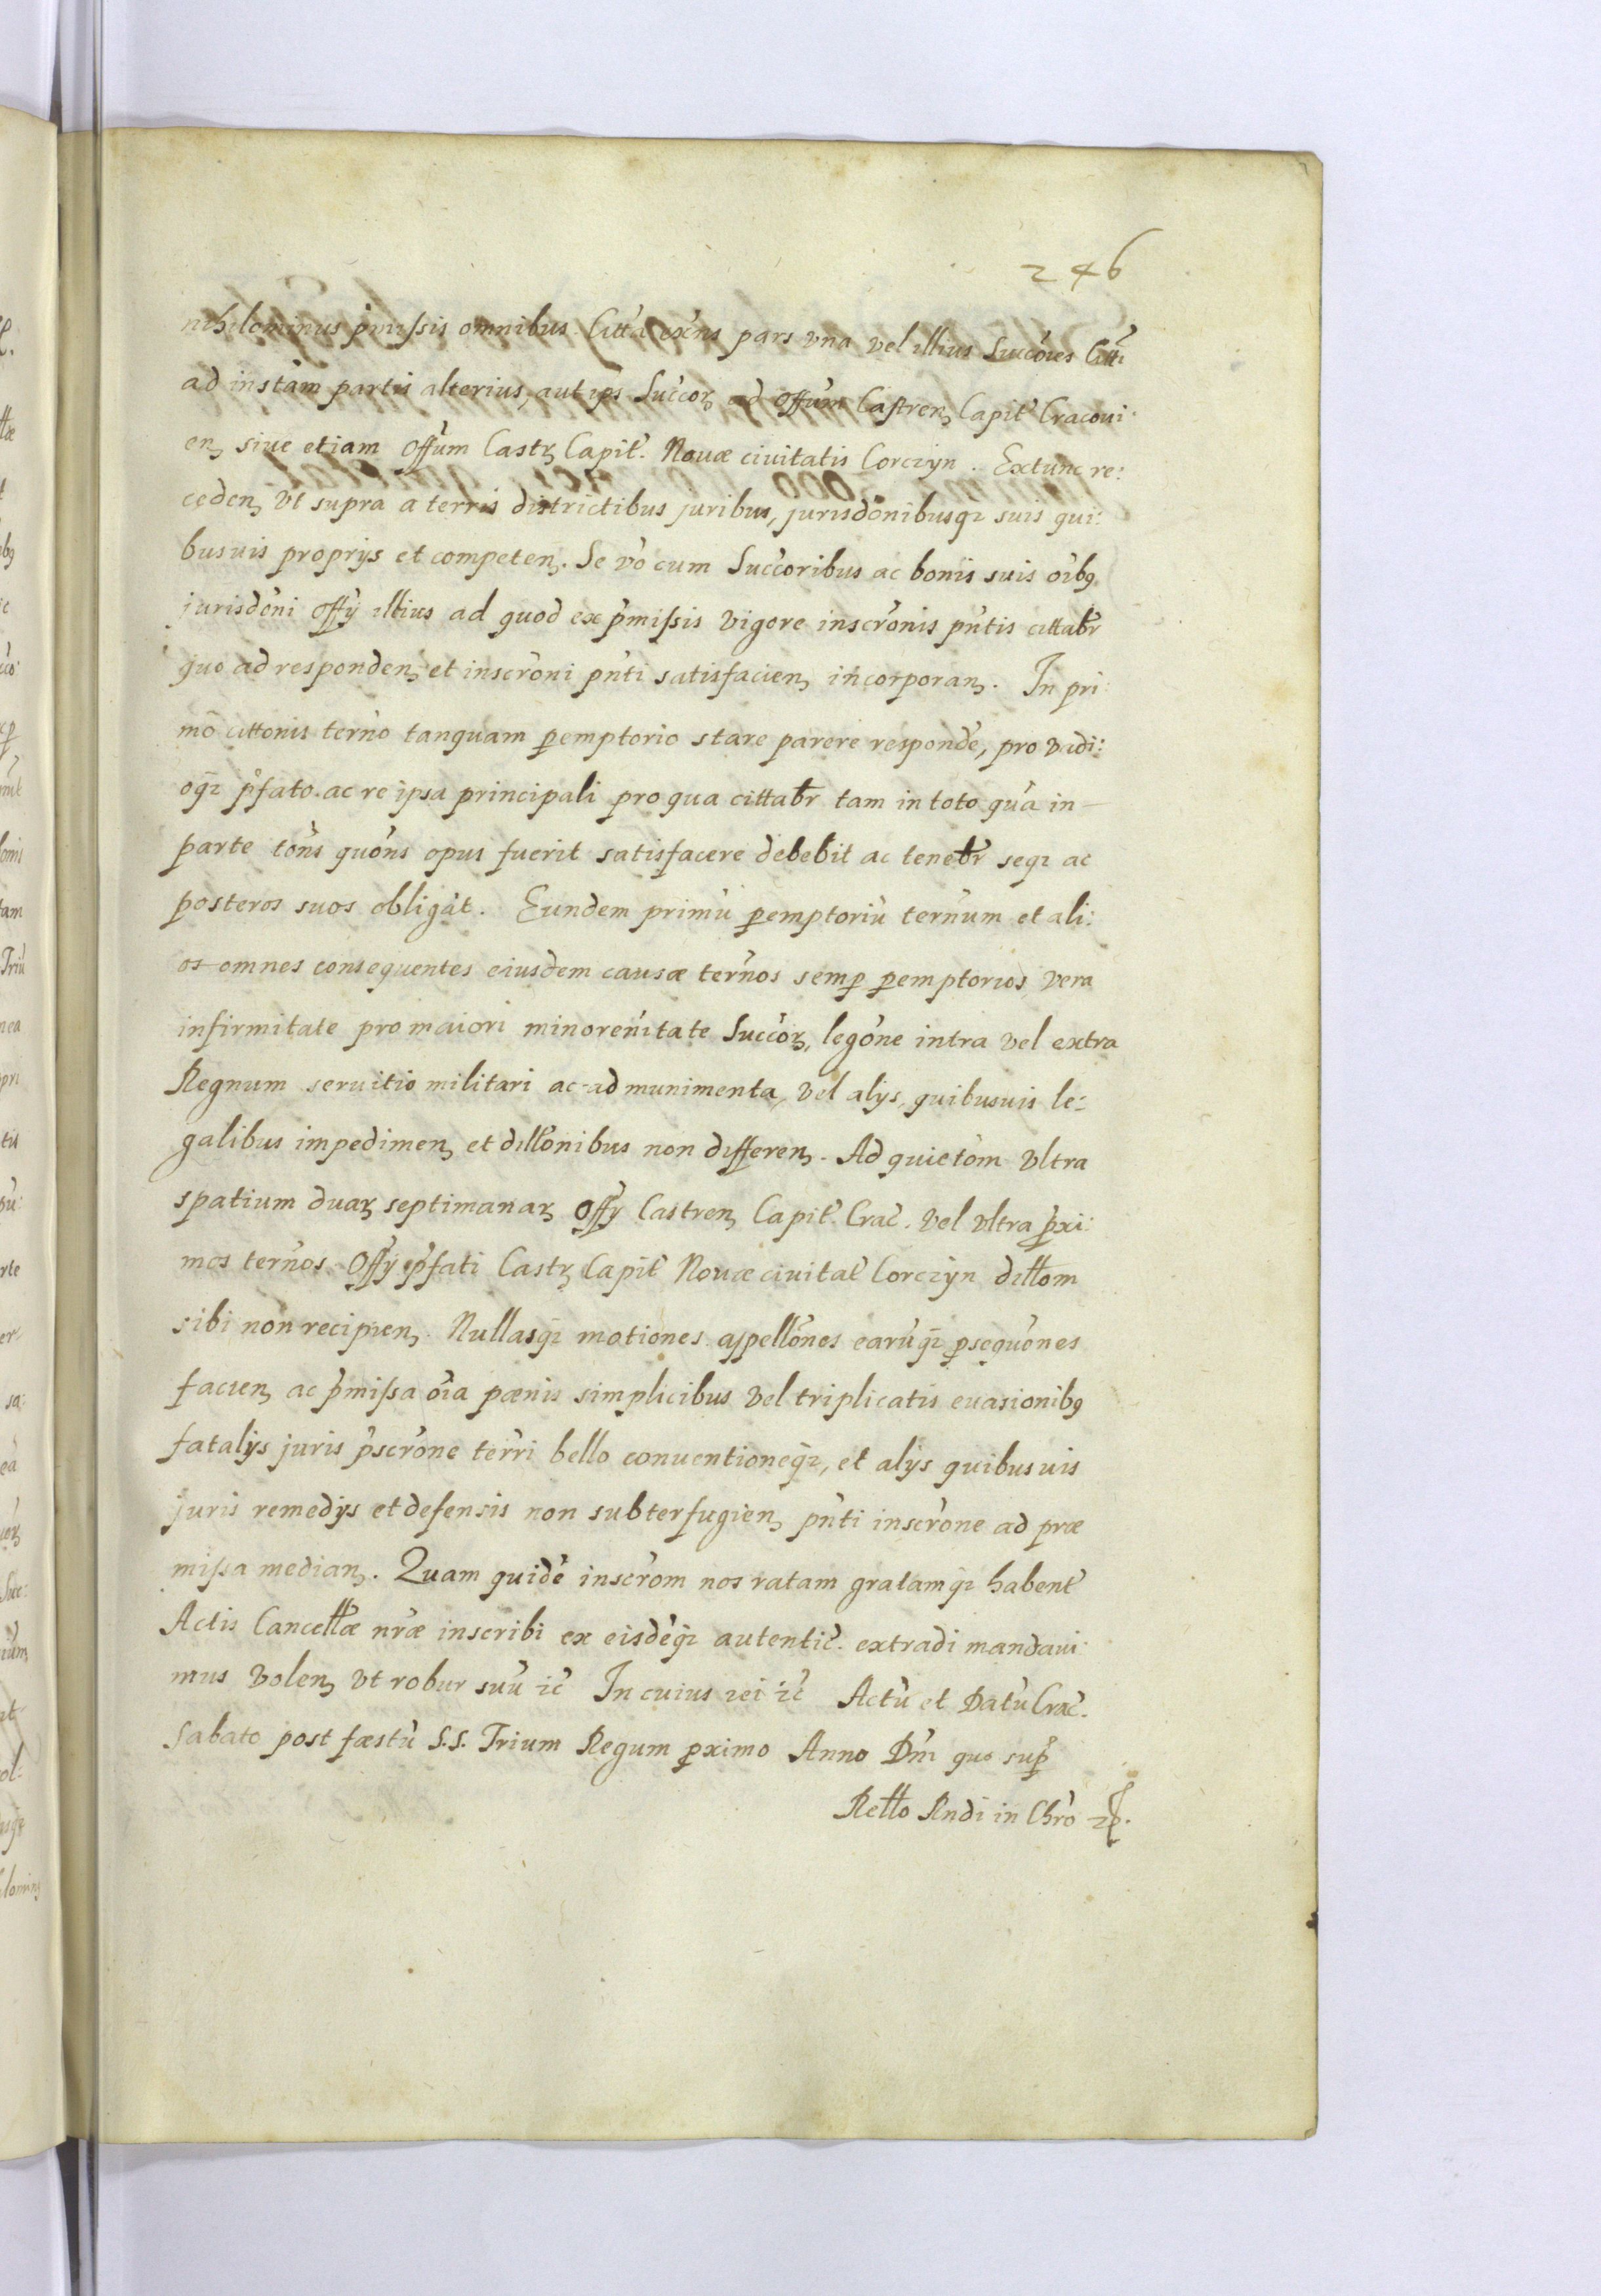 246
nihilominus p̃missis omnibus. Citta exẽns pars vna vel illius Succõres Citti
ad instãm partis alterius, aut ips Succorꝫ ad Offum Castrenꝫ Capit̃ Cracoui:
enꝫ siue etiam Offum Castrꝫ Capit̃. Nouæ ciuitatis Corczyn. Extunc re:
cedenꝫ vt supra a terris districtibus juribus, jurisdõnibusq̃ suis qui:
busuis proprijs et competenꝫ. Se võ cum Succoribus ac bonis suis oĩbꝰ
jurisdõni Offÿ illius ad quod ex p̃missis vigore inscrõnis pñtis cittabr̃
quo ad respondenꝫ et inscrõni pñti satisfacienꝫ incorporanꝫ. In pri:
mõ cittonis terño tanquam ꝑemptorio stare parere respondẽ, pro vadi:
oq̃ p̃fato ac re ipsa principali pro qua cittabr̃ tam in toto quã in
parte tõns quõns opus fuerit satisfacere debebit ac tenebr̃ seq̃ ac
posteros suos obligãt. Eundem primũ ꝑemptoriũ terñum et ali:
os omnes consequentes eiusdem causæ terños semꝑ ꝑemptorios, vera
infirmitate pro maiori minoreñitate Succorꝫ, legõne intra vel extra
Regnum seruitio militari ac ad munimenta, vel alijs, quibusuis le:
galibus impedimenꝫ et dillõnibus non differenꝫ. Ad quietõm vltra
spatium duarꝫ septimanarꝫ Offÿ Castrenꝫ Capit̃. Crac̃. vel vltra ꝓxi:
mos terños Offÿ p̃fati Castrꝫ Capit̃ Nouæ ciuitat̃ Corczyn dillom
sibi non recipienꝫ. Nullasq̃ motiones appellõnes earũq̃ ꝓsequõnes
facienꝫ ac p̃missa oĩa pœnis simplicibus vel triplicatis euasionibꝰ
fatalijs juris p̃scrõne terr̃i bello conuentioneq̃, et alijs quibusuis
juris remedijs et defensis non subterfugienꝫ pñti inscrõne ad præ
missa medianꝫ. Quam quidẽ inscrõm nos ratam gratamq̃ habent̃
Actis Cancellæ nr̃æ inscribi ex eisdẽq̃ autentic̃. extradi mandaui:
mus volenꝫ vt robur suũ ꝛc̃ In cuius rei ꝛc̃ Actũ et Datũ Crac̃.
Sabato post fæstũ S.S. Trium Regum ꝓximo Anno Dñi quo sup̃
Rello Rndi in Chrõ ꝛc.